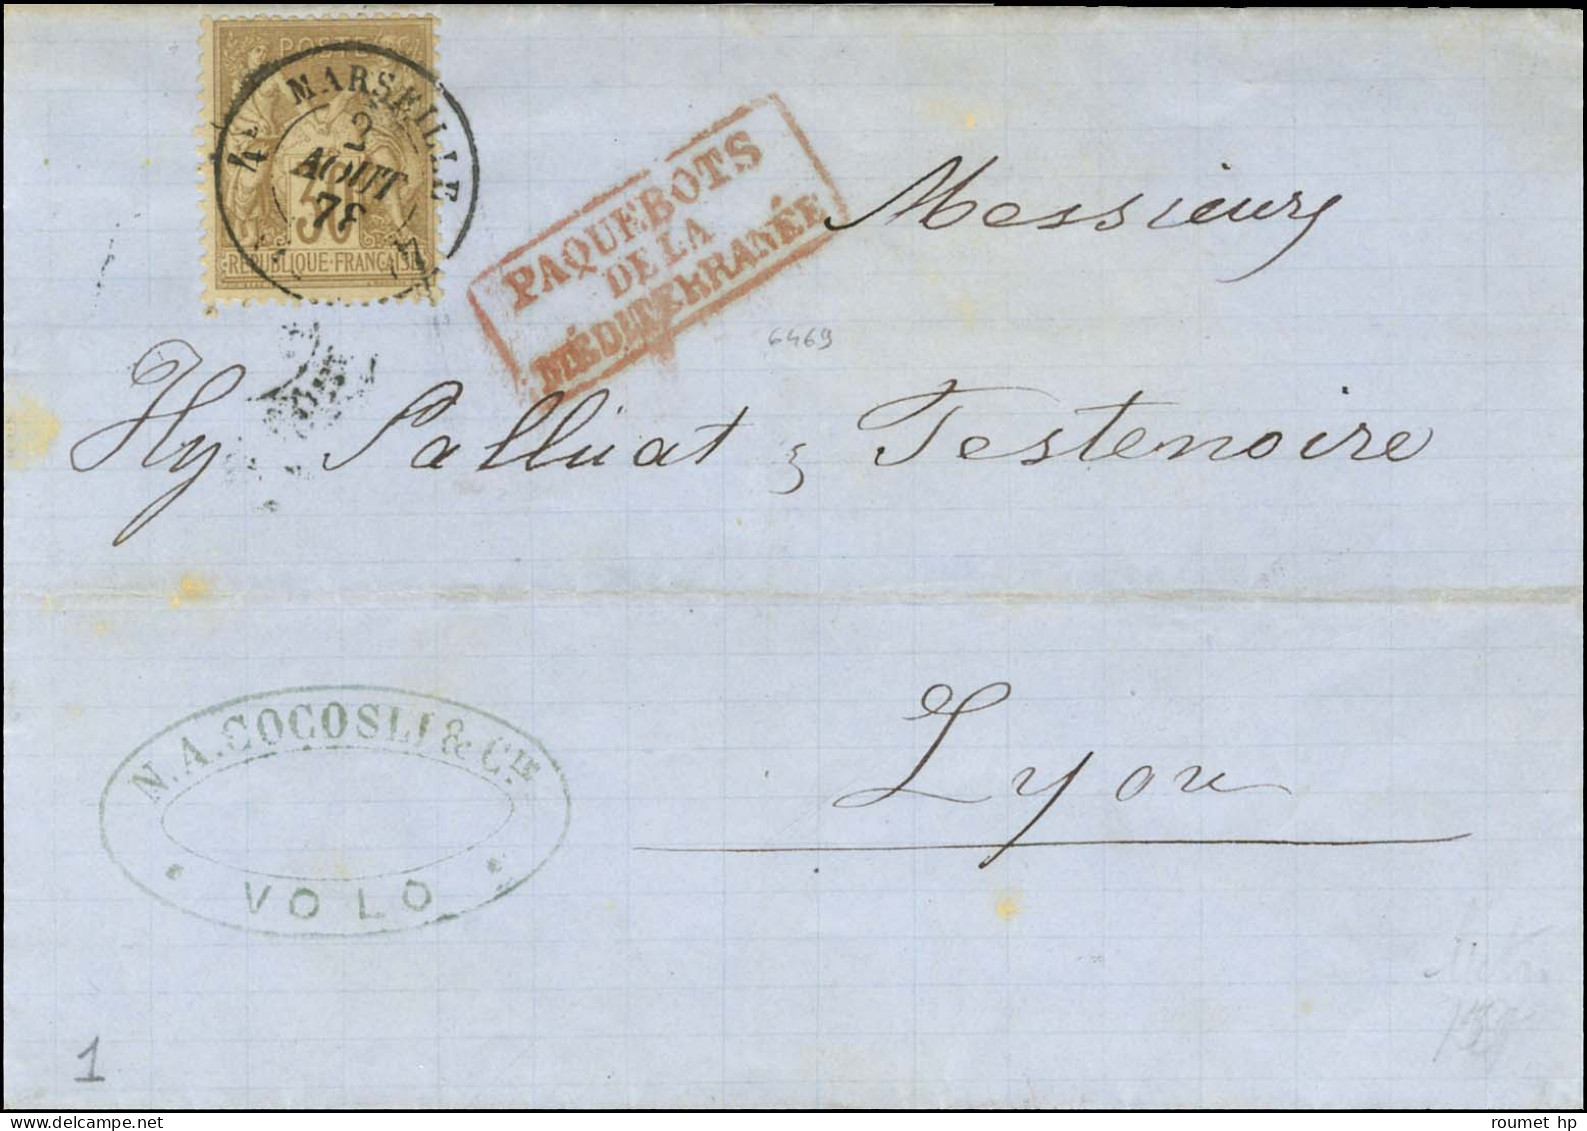 POSTE
MARSEILLE
2
AOUT
78
30
REPUBLIQUE FRANÇAISE
PAQUEBOTS
DE LA
MÉDITERRANÉE
Messieurs
6469
Hy Palluat & Testenoire
Lyon
N. A. COCOSLI & CIE
VOLO
1
roumet hp